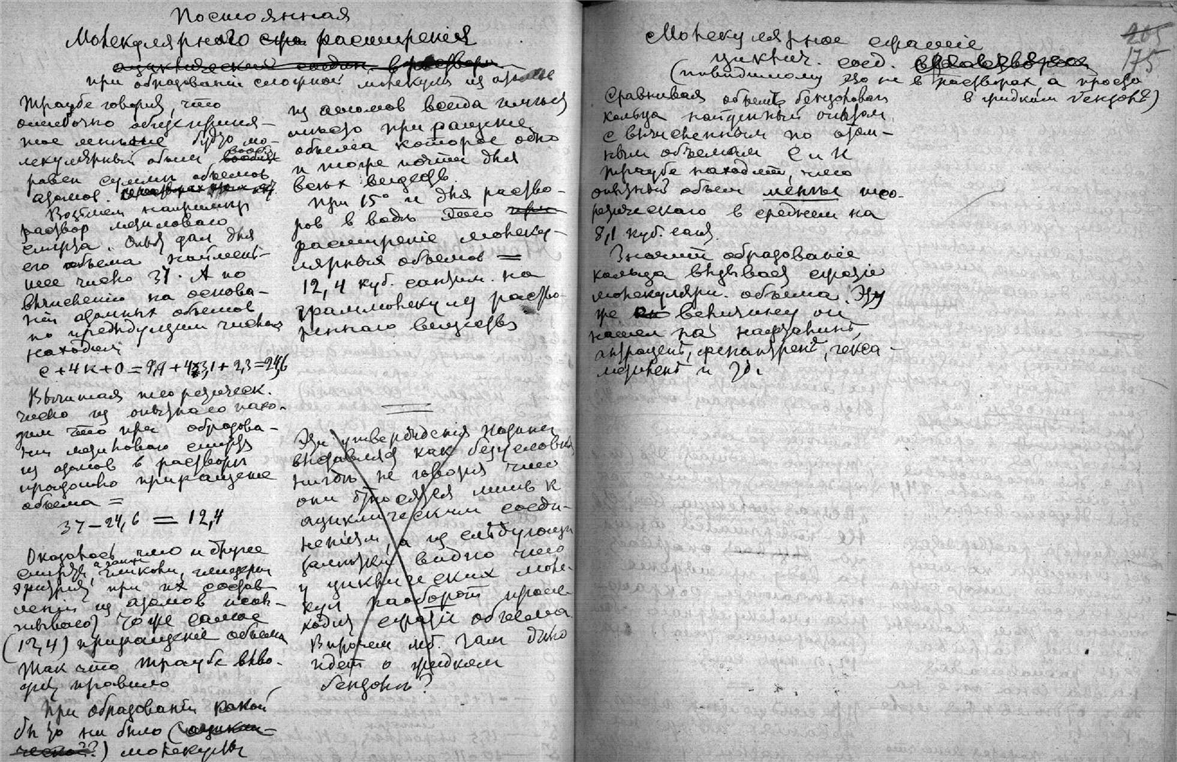 Постоянная
Молекулярного расширения
при образовании сложной молекулы из атомов
Траубе говорит, что
ошибочно
молекулярный объем
равен суммы объемов
атомов.
Возьмем например
раствор метиловаго
спирта. Опыт дал для
его объема наимень-
шее число 37. А по
вычислению на основа-
нии атомных объемов
по предыдущим числам
находим
C + 4H + O = 9,9 + 4·3,1 + 2,3 = 24,6
Вычитая теоретическ.
число из опытнаго нахо-
дим что при образова-
нии метиловаго спирта
из атомов в растворе
произошло приращение
объема =
37 – 24,6 = 12,4
Оказалось что и другие
спирты, гликоли, глицерин
при их состав-
лении из атомов
тоже самое
(12,4) приращение объема
Так что Траубе выво-
дит правило
При образовании какой
бы то ни было
молекулы
из атомов всегда
приращение
объема которое одно
и тоже почти для
всех веществ.
При 15° и для раство-
ров в воде это
расширение молеку-
лярных объемов =
12,4 куб. сантим. на
граммолекулу раство-
реннаго вещества
Эти утверждения
как безусловн
нигде не говоря что
они относятся лишь к
ациклическим соеди-
нениям, а из следующих
видно что
у циклических моле-
кул наоборот проис-
ходит сжатие объема
Впрочем м.б. там дело
идет о жидком
бензоле?
205
175
Молекулярное сжатие
циклич. соед.
(повидимому это не в растворах а просто
в жидком бензоле?)
Сравнивая объем бензоловаго
кольца найденный опытом
с вычисленным по атом-
ным объемам C и H
Траубе находит, что
опытный объем меньше тео-
ретическаго в среднем на
8,1 куб. сант.
Значит образование
кольца вызывает сжатие
молекулярн. объема. Эту
же величину он
нашел на нафталин,
антрацен, фенантрен, гекса-
метилен и др.